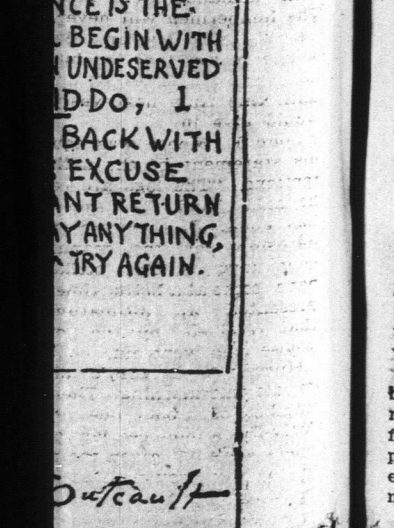 NCE IS THE
BEGIN WITH
UNDESERVED
DO, I
BACK WITH
EXCUSE
ANT RETURN
AY ANYTHING,
TRY AGAIN.
Outcault